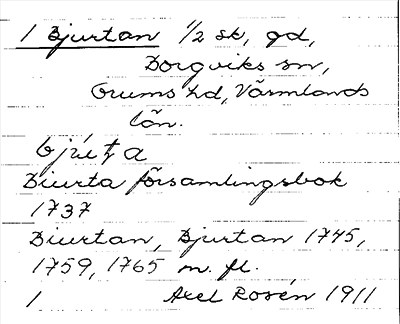 1 Bjurtan 1/2 sk, gd,
Borgviks sn,
Grums hd, Värmlands
län.
bjúʈa
Biurta församlingsbok
1737
Biurtan, Bjurtan 1745,
1759, 1765 m. fl.
1 Axel Rosén 1911